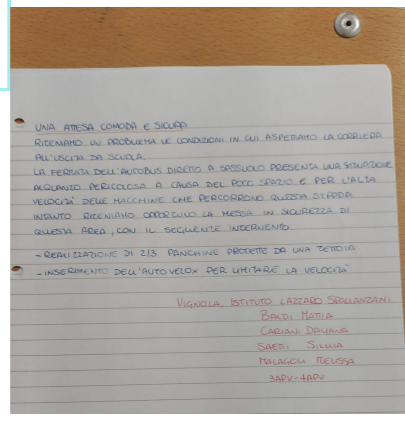 UNA ATTESA COMODA E SICURA
RITENIAMO UN PROBLEMA LE CONDIZIONI IN CUI ASPETTIAMO LA CORRIERA
ALL'USCITA DA SCUOLA.
LA FERMATA DELL'AUTOBUS DIRETTO A SASSUOLO PRESENTA UNA SITUAZIONE
ALQUANTO PERICOLOSA A CAUSA DEL POCO SPAZIO E PER L'ALTA
VELOCITÀ DELLE MACCHINE CHE PERCORRONO QUESTA STRADA
INTANTO RITENIAMO OPPORTUNO LA MESSA IN SICUREZZA DI
QUESTA AREA, CON IL SEGUENTE INTERVENTO:
-REALIZZAZIONE DI 2/3 PANCHINE PROTETTE DA UNA TETTOIA
-INSERIMENTO DELL'AUTOVELOX PER LIMITARE LA VELOCITÀ
VIGNOLA, ISTITUTO LAZZARO SPALLANZANI
BALDI MATTIA
CARIANI DAYANA
SAETTI SILVIA
MALAGOLI MELISSA
3APV-4APV